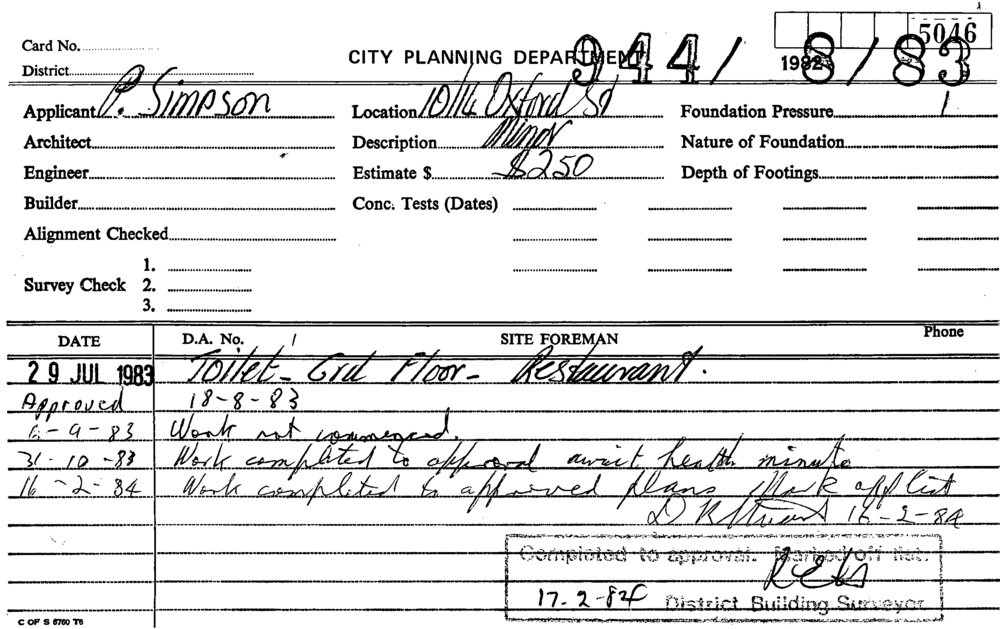 5046
Card No.
CITY PLANNING DEPARTMENT 944/8/83
1982
District
Applicant P. Simpson Location Oxford St Foundation Pressure
Architect Description Minor Nature of Foundation
Engineer Estimate $ $250 Depth of Footings
Builder Conc. Tests (Dates)
Alignment Checked
1.
Survey Check 2.
3.
DATE D.A. No. SITE FOREMAN Phone
29 JUL 1983 Toilet - Grd Floor - Restaurant.
Approved 18-8-83
-9-83 Work not commenced.
31-10-83 Work completed to approval await health minute
16-2-84 Work completed to approved plans Mark off list
D R Stuart 16-2-84
Completed to approval. Marked off list.
17-2-84 District Building Surveyor
C OF S 6760 T6